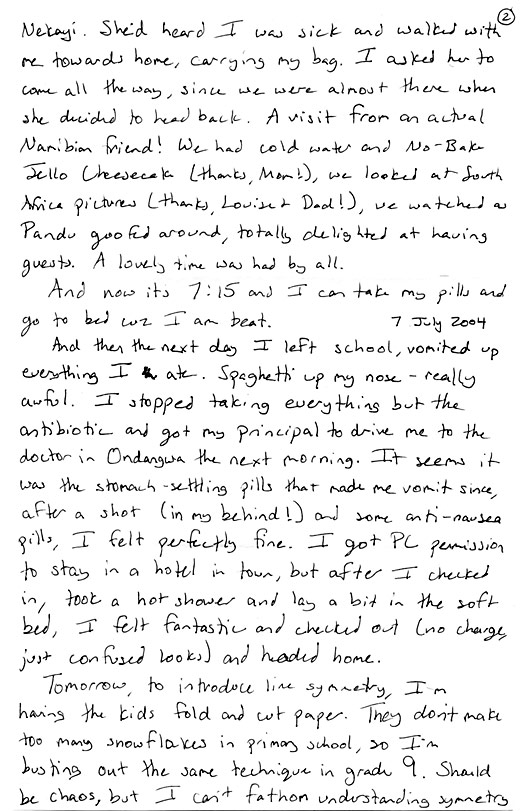 ②
Nekayi. She'd heard I was sick and walked with
me towards home, carrying my bag. I asked her to
come all the way, since we were almost there when
she decided to head back. A visit from an actual
Namibian friend! We had cold water and No-Bake
Jello Cheesecake (thanks, Mom!), we looked at South
Africa pictures (thanks, Louise + Dad!), we watched as
Pandu goofed around, totally delighted at having
guests. A lovely time was had by all.
And now its 7:15 and I can take my pills and
go to bed cuz I am beat. 7 July 2004
And then the next day I left school, vomited up
everything I ate. Spaghetti up my nose - really
awful. I stopped taking everything but the
antibiotic and got my principal to drive me to the
doctor in Ondangwa the next morning. It seems it
was the stomach-settling pills that made me vomit since,
after a shot (in my behind!) and some anti-nausea
pills, I felt perfectly fine. I got PC permission
to stay in a hotel in town, but after I checked
in, took a hot shower and lay a bit in the soft
bed, I felt fantastic and checked out (no charge,
just confused looks) and headed home.
Tomorrow, to introduce line symmetry, I'm
having the kids fold and cut paper. They don't make
too many snowflakes in primary school, so I'm
busting out the same technique in grade 9. Should
be chaos, but I can't fathom understanding symmetry